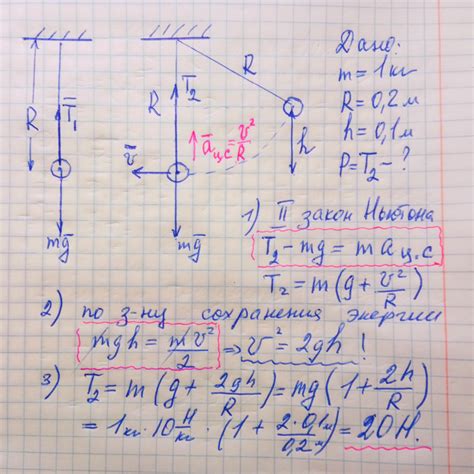 R
T̅₁
mg̅
R
T₂
R
v̅
a̅ц.с = v²/R
h
mg̅
Дано:
m = 1 кг
R = 0,2 м
h = 0,1 м
P = T₂ - ?
1) II закон Ньютона
T₂ - mg = m aц.с.
T₂ = m(g + v²/R)
2) по з-ну сохранения энергии
mgh = mv²/2 ⇒ v² = 2gh !
3) T₂ = m(g + 2gh/R) = mg(1 + 2h/R)
= 1кг · 10 Н/кг · (1 + 2·0,1м/0,2м) = 20Н.